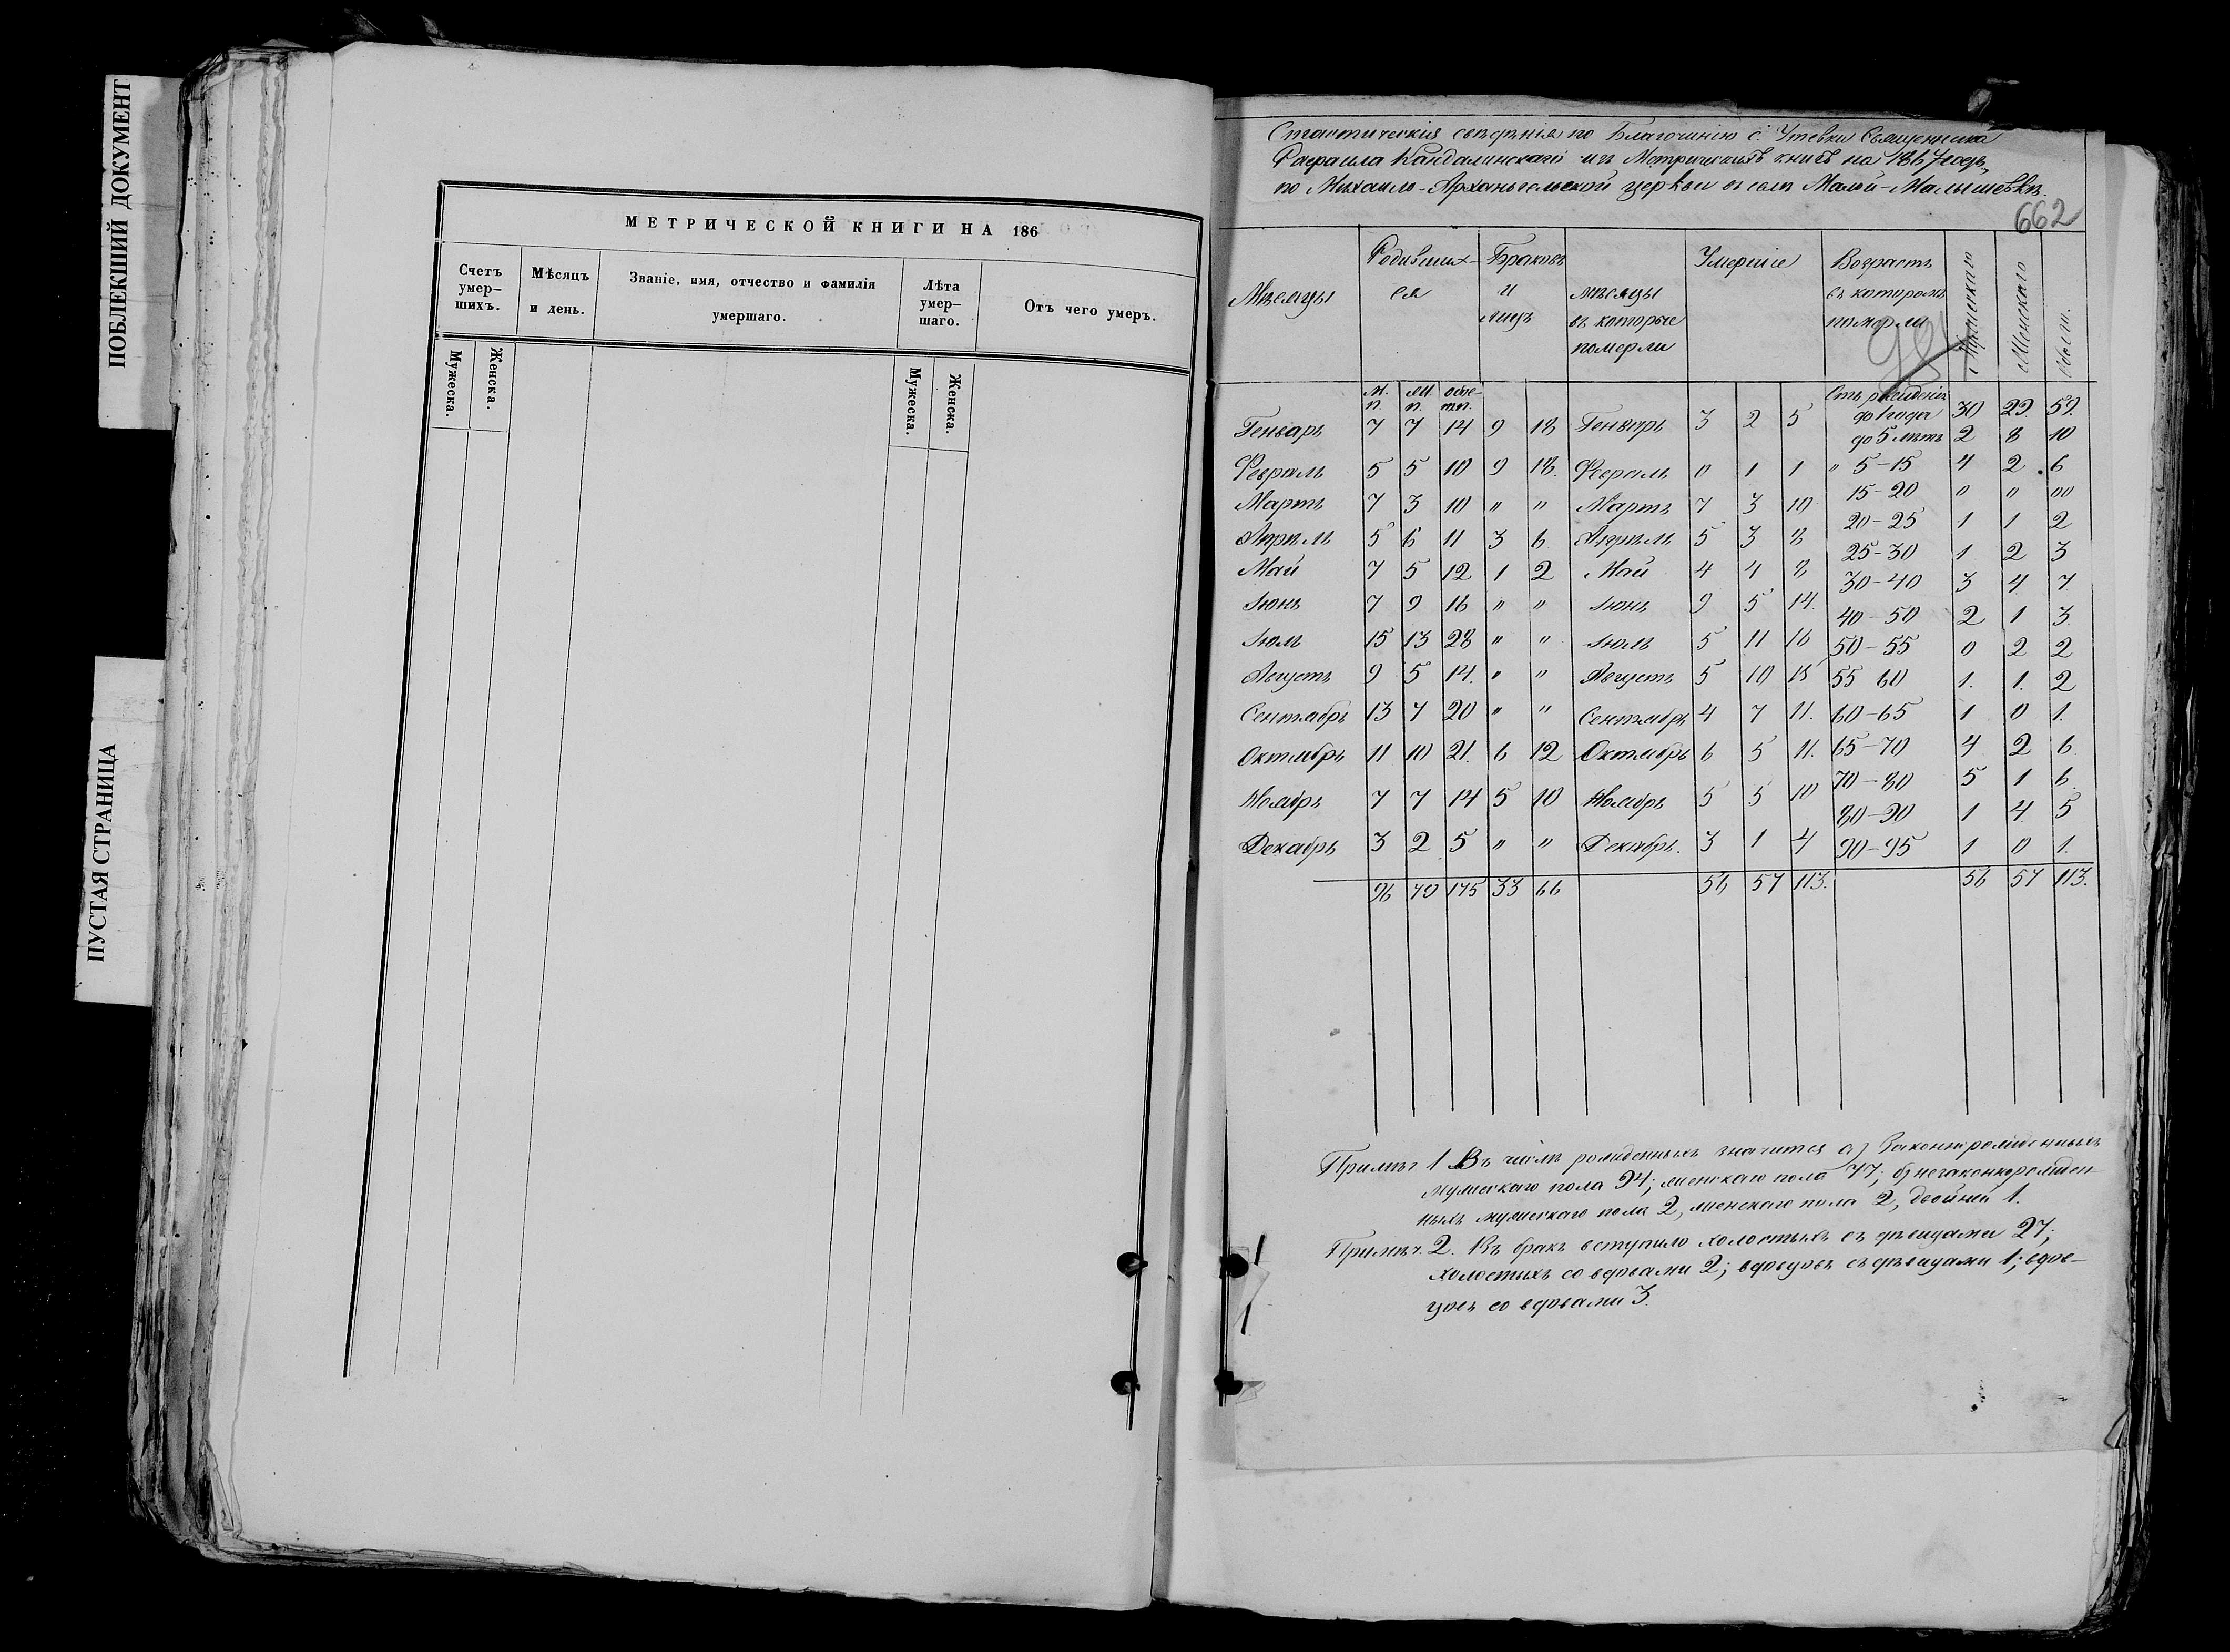 ПОБЛЕКШИЙ ДОКУМЕНТ
ПУСТАЯ СТРАНИЦА
МЕТРИЧЕСКОЙ КНИГИ НА 186
Счетъ умер- шихъ. Мѣсяцъ и день. Званіе, имя, отчество и фамилія умершаго. Лѣта умер- шаго. Отъ чего умеръ.
Мужеска. Женска. Мужеска. Женска.
свѣдѣнія по Благочинію с. Утевки Священника
Рафаила Кандалинскаго изъ Метрическихъ книгъ на 1867 годъ,
по Михаило-Архангельской церкви въ селѣ Малой-Малышевкѣ.
662
Мѣсяцы Родивших- ся Браковъ и лицъ мѣсяцы въ которые померли Умершіе Возрастъ въ которомъ померли Мужескаго Женскаго
м. п. ж. п. обое- т.п. Отъ рожденія
Генварь 7 7 14 9 18 Генварь 3 2 5 до 1 года 30 29. 59.
до 5 лѣтъ 2 8 10
Февраль 5 5 10 9 18. Февраль 0 1 1 " 5-15 4 2 6
Мартъ 7 3 10 " " Мартъ 7 3 10 15-20 0 0 00
Апрѣль 5 6 11 3 6 Апрѣль 5 3 8 20-25 1 1 2
Май 7 5 12 1 2 Май 4 4 8 25-30 1 2 3
Іюнь 7 9 16 " " Іюнь 9 5 14. 30-40 3 4 7
Іюль 15 13 28 " " Іюль 5 11 16 40-50 2 1 3.
50-55 0 2 2
Августъ 9 5 14. " " Августъ 5 10 15 55 60 1. 1. 2
Сентябрь 13 7 20 " " Сентябрь 4 7 11. 60-65 1 0 1.
Октябрь 11 10 21. 6 12 Октябрь 6 5 11. 65-70 4 2 6.
Ноябрь 7 7 14 5 10 Ноябрь 5 5 10 70-80 5 1 6.
80-90 1 4 5
Декабрь 3 2 5 " " Декабрь. 3 1 4 90-95 1 0 1.
96 79 175 33 66 56 57 113. 56 57 113.
Примѣч 1 Въ числѣ рожденныхъ значится а) Законнорожденныхъ
мужескаго пола 94; женскаго пола 77; б) незаконнорожден-
ныхъ мужескаго пола 2, женскаго пола 2, двойней 1.
Примѣч. 2. Въ бракъ вступило холостыхъ съ дѣвицами 27;
холостыхъ со вдовами 2; вдовцовъ съ дѣвицами 1; вдов-
цовъ со вдовами 3.